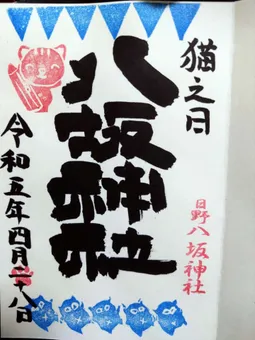 猫之日
八坂神社
日野八坂神社
令和五年四月廿八日